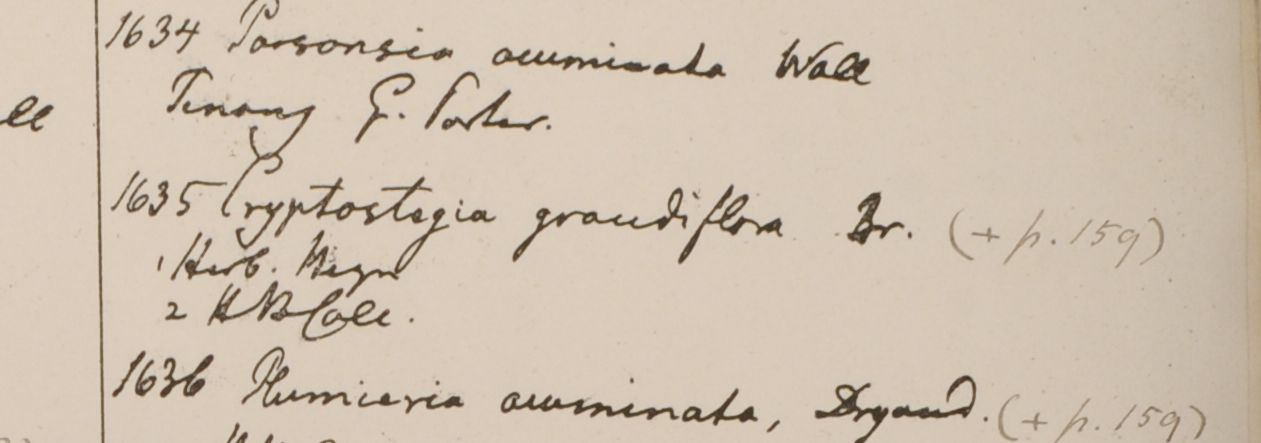 ll
1634 Parsonsia acuminata Wall
Penang G. Porter.
1635 Cryptostegia grandiflora Br. (+ p. 159)
1 Herb. Heyn
2 HBCalc.
1636 Plumieria acuminata, Dryand. (+ p. 159)